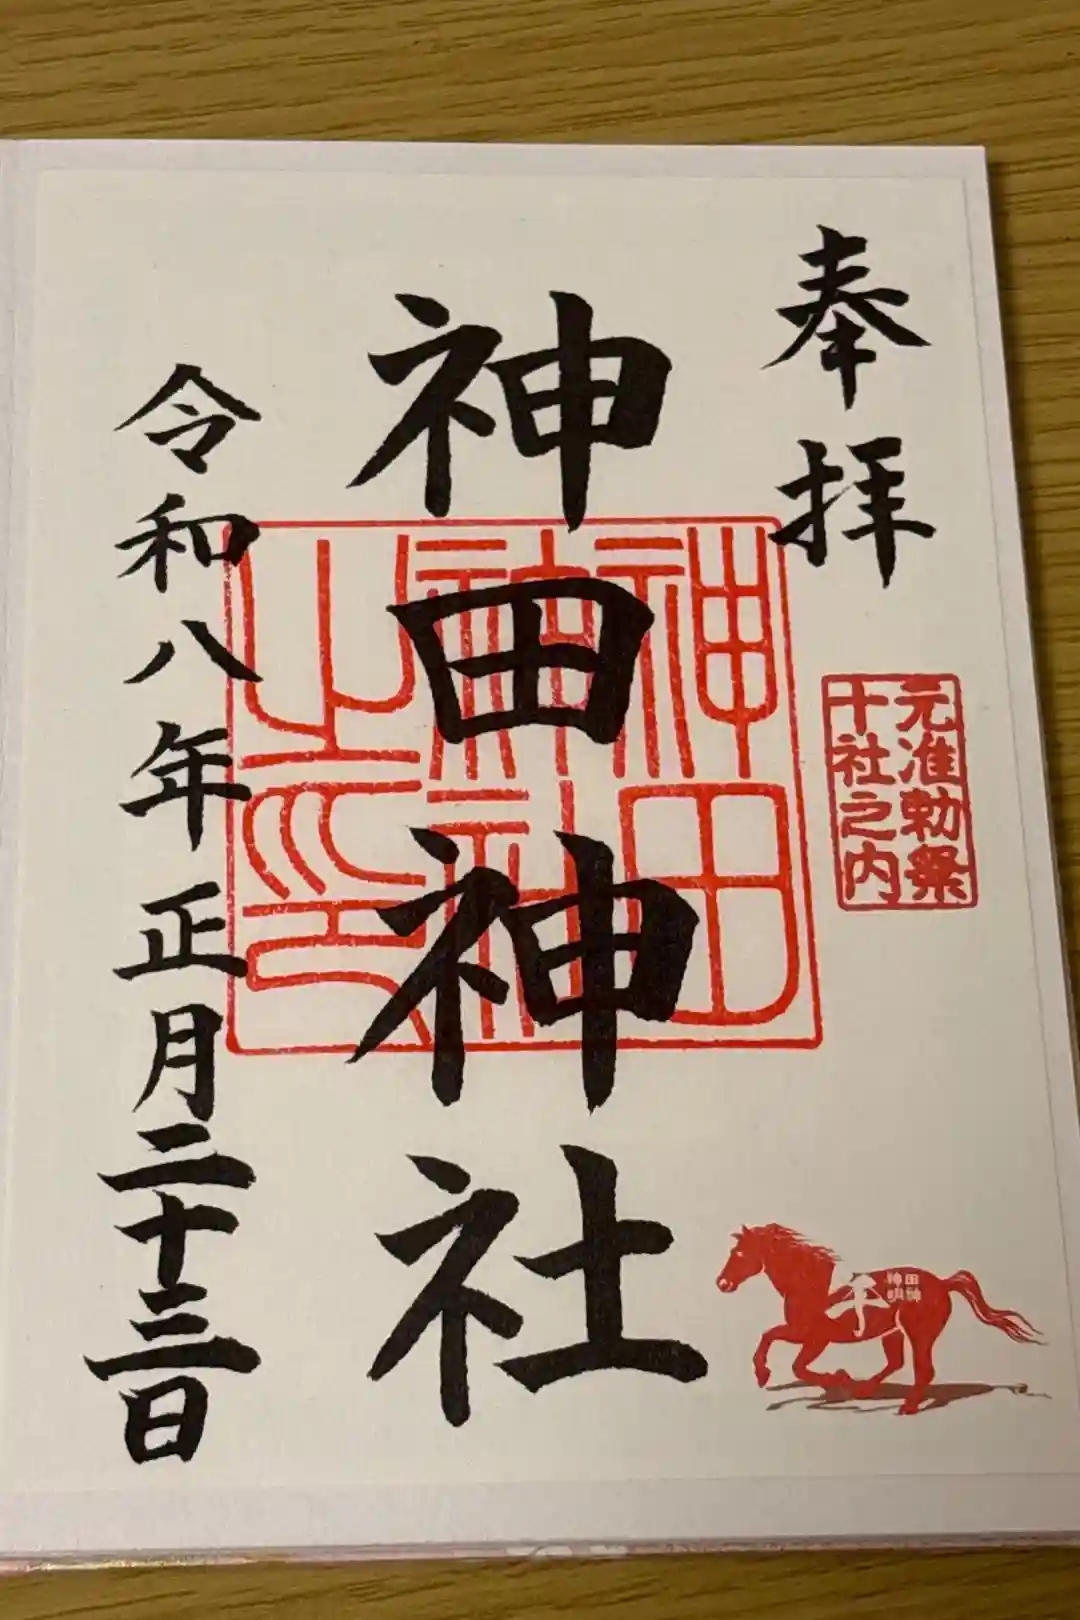 奉拝
元准勅祭
十社之内
神田神社
神田
神社
之印
令和八年正月二十三日
午
神田
明神